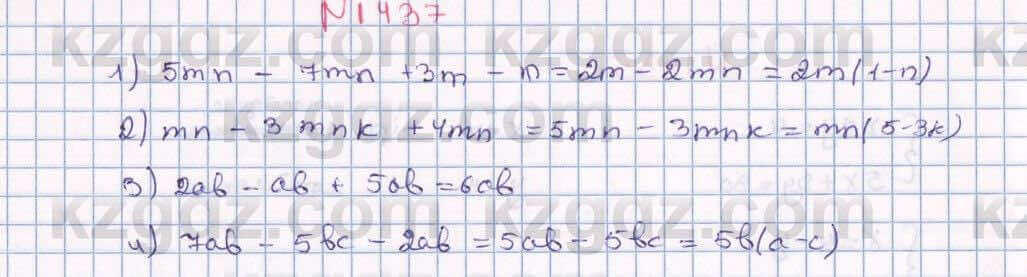 N1437
kzgdz.com kzgdz.com kzgdz.com
1) 5mn - 7mn + 3m - n = 2m - 2mn = 2m(1-n)
2) mn - 3 mnk + 4mn = 5mn - 3mnk = mn(5-3k)
3) 2ab - ab + 5ab = 6ab
4) 7ab - 5bc - 2ab = 5ab - 5bc = 5b(a-c)